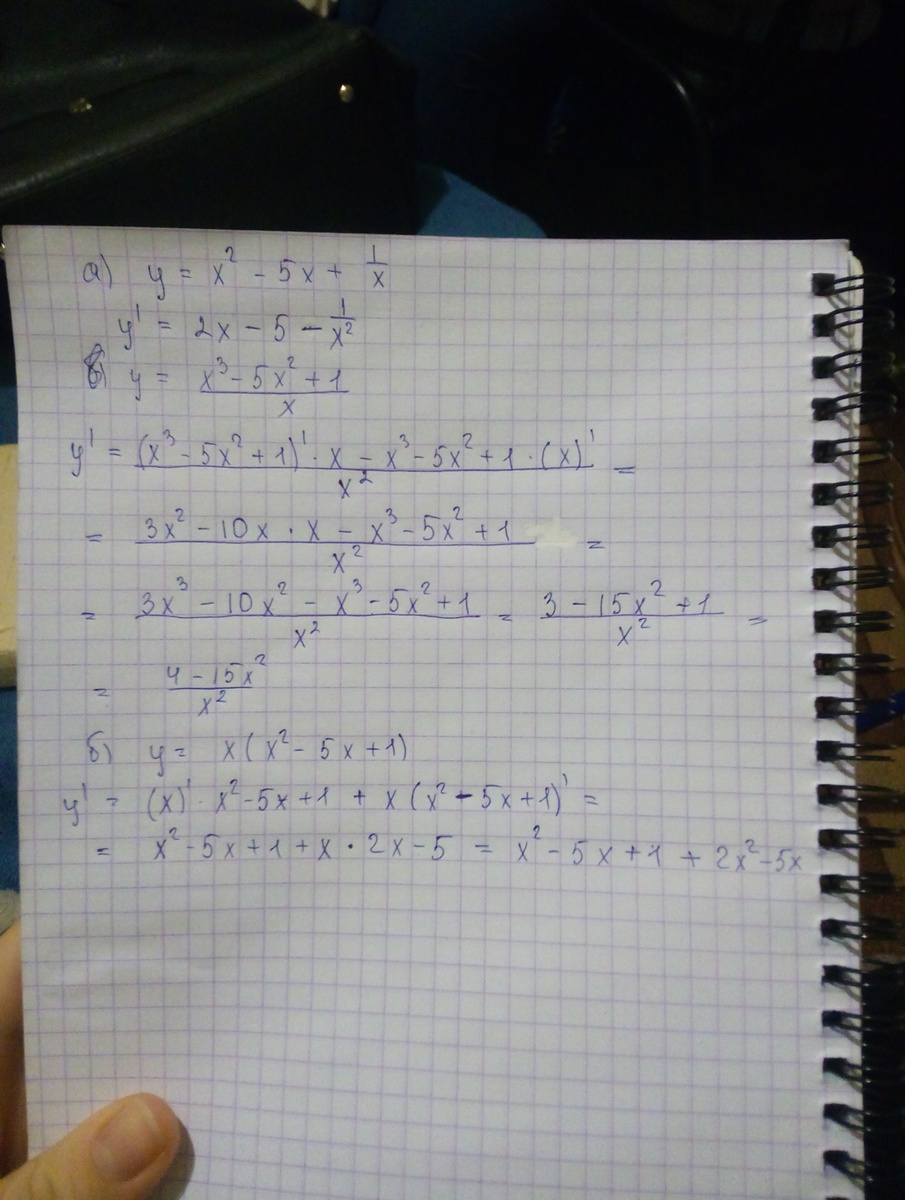 а) y = x² - 5x + 1/x
y' = 2x - 5 - 1/x²
в) y = (x³ - 5x² + 1)/x
y' = ((x³ - 5x² + 1)' · x - x³ - 5x² + 1 · (x)')/x² =
= (3x² - 10x · x - x³ - 5x² + 1)/x² =
= (3x³ - 10x² - x³ - 5x² + 1)/x² = (3 - 15x² + 1)/x² =
= (4 - 15x²)/x²
б) y = x(x² - 5x + 1)
y' = (x)' · x² - 5x + 1 + x(x² - 5x + 1)' =
= x² - 5x + 1 + x · 2x - 5 = x² - 5x + 1 + 2x² - 5x